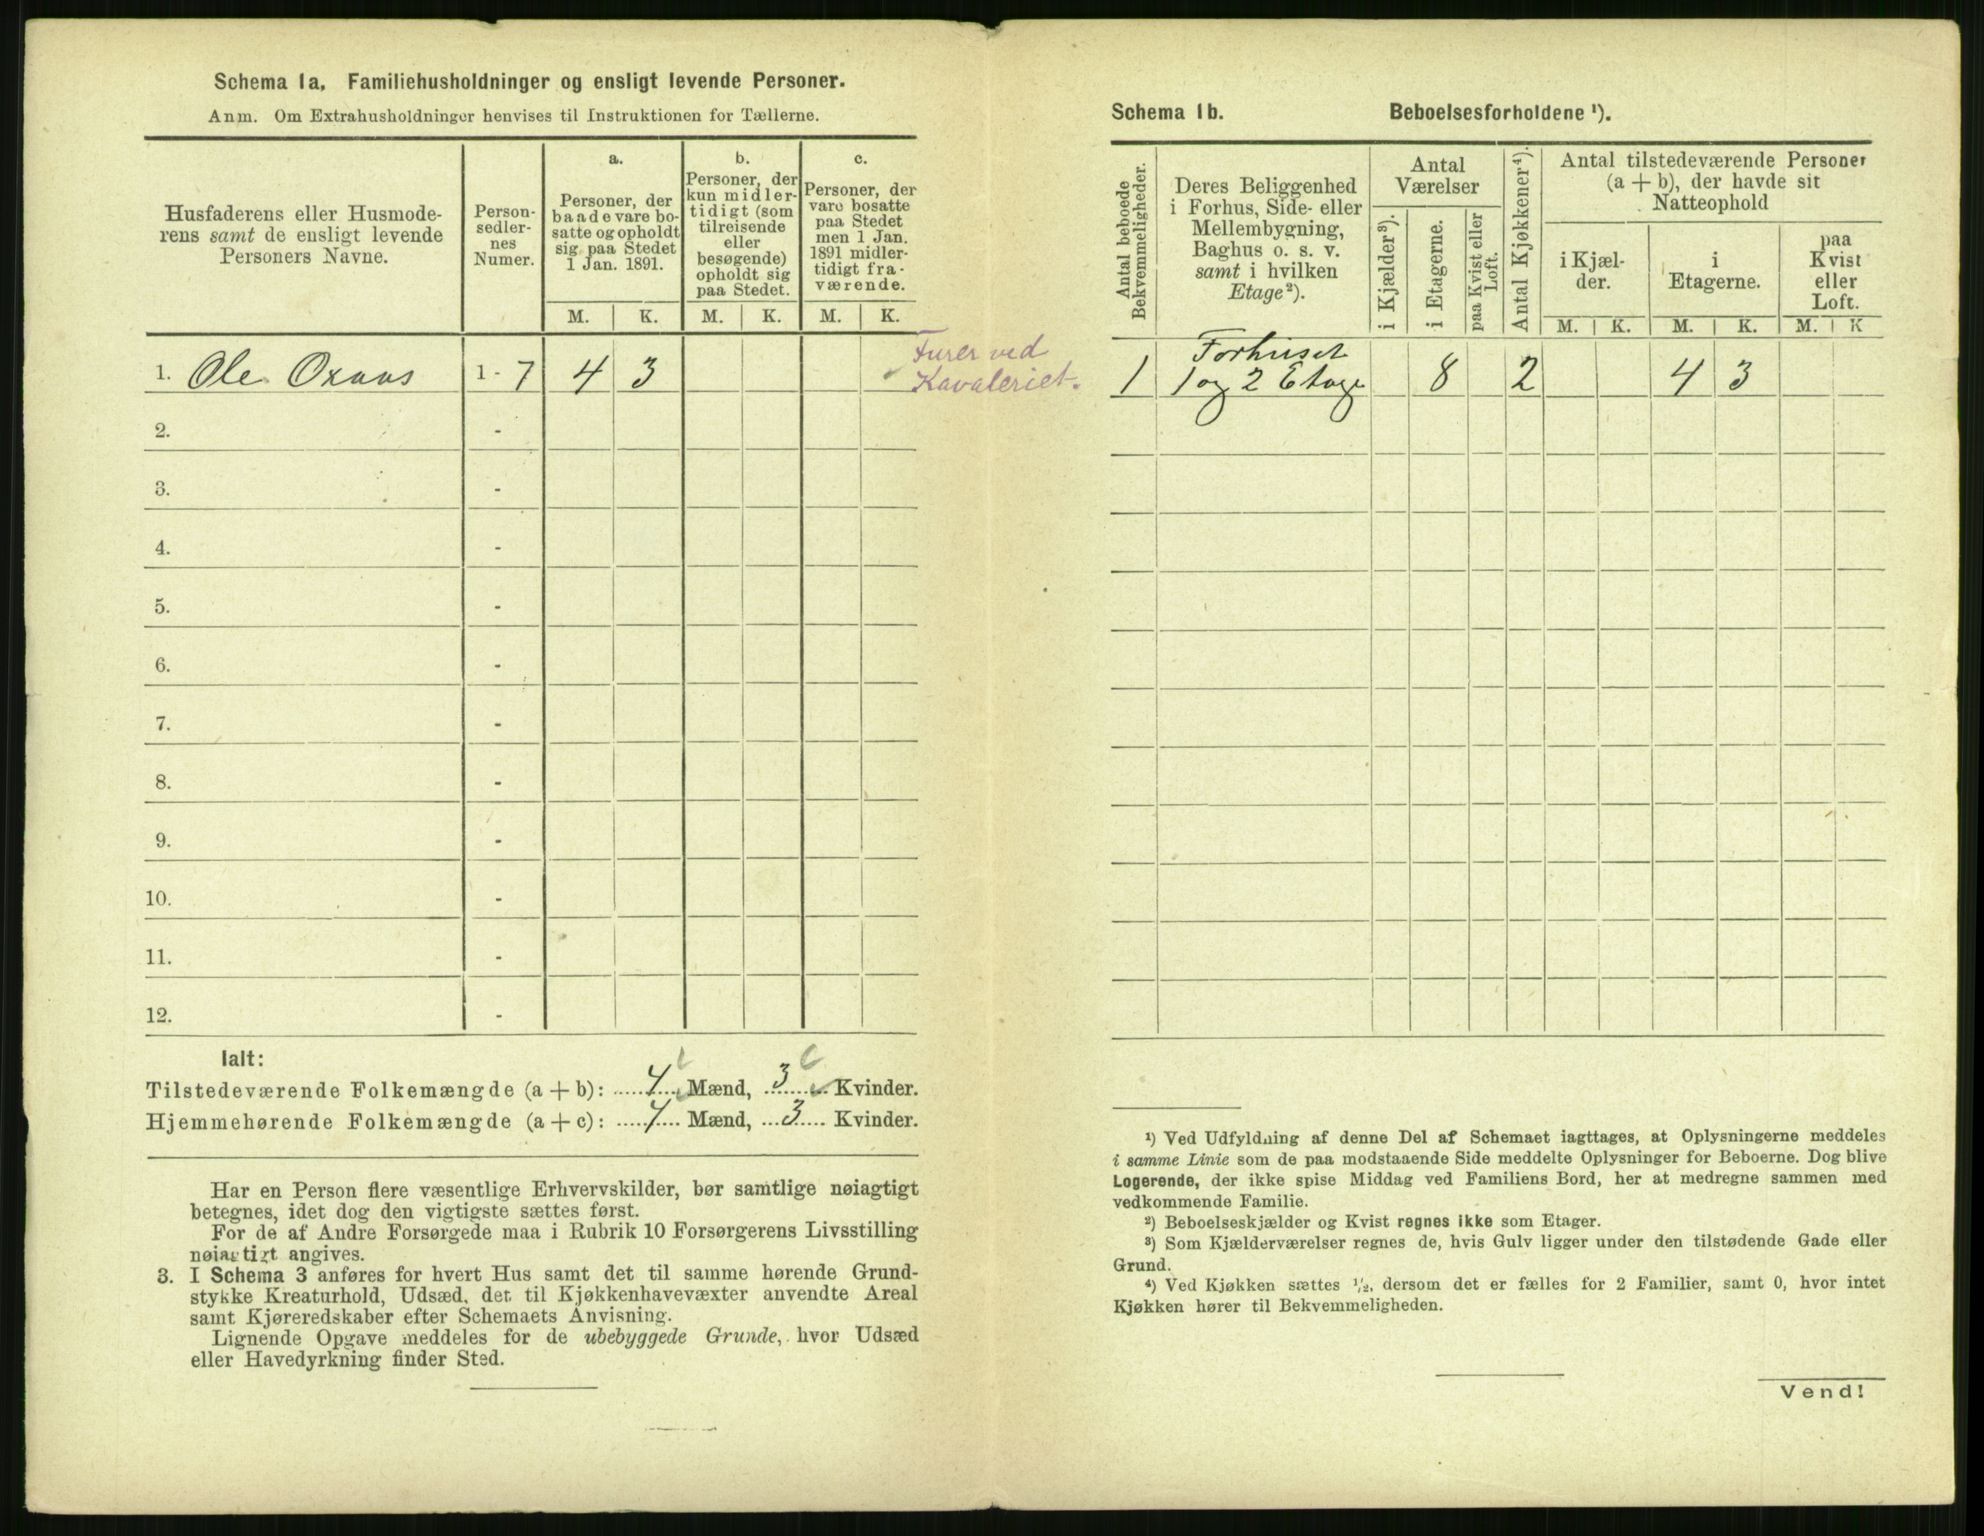 Schema 1a. Familiehusholdninger og ensligt levende Personer.
Anm. Om Extrahusholdninger henvises til Instruktionen for Tællerne.
Husfaderens eller Husmode-
rens samt de ensligt levende
Personers Navne.
Person-
sedler-
nes
Numer.
a.
Personer, der
baade vare bo-
satte og opholdt
sig paa Stedet
1 Jan. 1891.
b.
Personer, der
kun midler-
tidigt (som
tilreisende
eller
besøgende)
opholdt sig
paa Stedet.
c.
Personer, der
vare bosatte
paa Stedet
men 1 Jan.
1891 midler-
tidigt fra-
værende.
M. K. M. K. M. K.
1. Ole 1 - 7 4 3
Furer ved
Kavaleriet.
2. -
3. -
4. -
5. -
6. -
7. -
8. -
9. -
10. -
11. -
12. -
Ialt:
Tilstedeværende Folkemængde (a + b): 4 Mænd, 3 Kvinder.
Hjemmehørende Folkemængde (a + c): 4 Mænd, 3 Kvinder.
Har en Person flere væsentlige Erhvervskilder, bør samtlige nøiagtigt
betegnes, idet dog den vigtigste sættes først.
For de af Andre Forsørgede maa i Rubrik 10 Forsørgerens Livsstilling
nøiagtigt angives.
3. I Schema 3 anføres for hvert Hus samt det til samme hørende Grund-
stykke Kreaturhold, Udsæd, det til Kjøkkenhavevæxter anvendte Areal
samt Kjøreredskaber efter Schemaets Anvisning.
Lignende Opgave meddeles for de ubebyggede Grunde, hvor Udsæd
eller Havedyrkning finder Sted.
Schema 1b. Beboelsesforholdene ¹).
Antal beboede
Bekvemmeligheder.
Deres Beliggenhed
i Forhus, Side- eller
Mellembygning,
Baghus o. s. v.
samt i hvilken
Etage²).
Antal
Værelser
i Kjælder³).
i Etagerne.
paa Kvist eller
Loft.
Antal Kjøkkener⁴).
Antal tilstedeværende Personer
(a + b), der havde sit
Natteophold
i Kjæl-
der.
i
Etagerne.
paa
Kvist
eller
Loft.
M. K. M. K. M. K
1 Forhuset
1 og 2 Etage 8 2 4 3
¹) Ved Udfyldning af denne Del af Schemaet iagttages, at Oplysningerne meddeles
i samme Linie som de paa modstaaende Side meddelte Oplysninger for Beboerne. Dog blive
Logerende, der ikke spise Middag ved Familiens Bord, her at medregne sammen med
vedkommende Familie.
²) Beboelseskjælder og Kvist regnes ikke som Etager.
³) Som Kjælderværelser regnes de, hvis Gulv ligger under den tilstødende Gade eller
Grund.
⁴) Ved Kjøkken sættes ½, dersom det er fælles for 2 Familier, samt 0, hvor intet
Kjøkken hører til Bekvemmeligheden.
Vend!